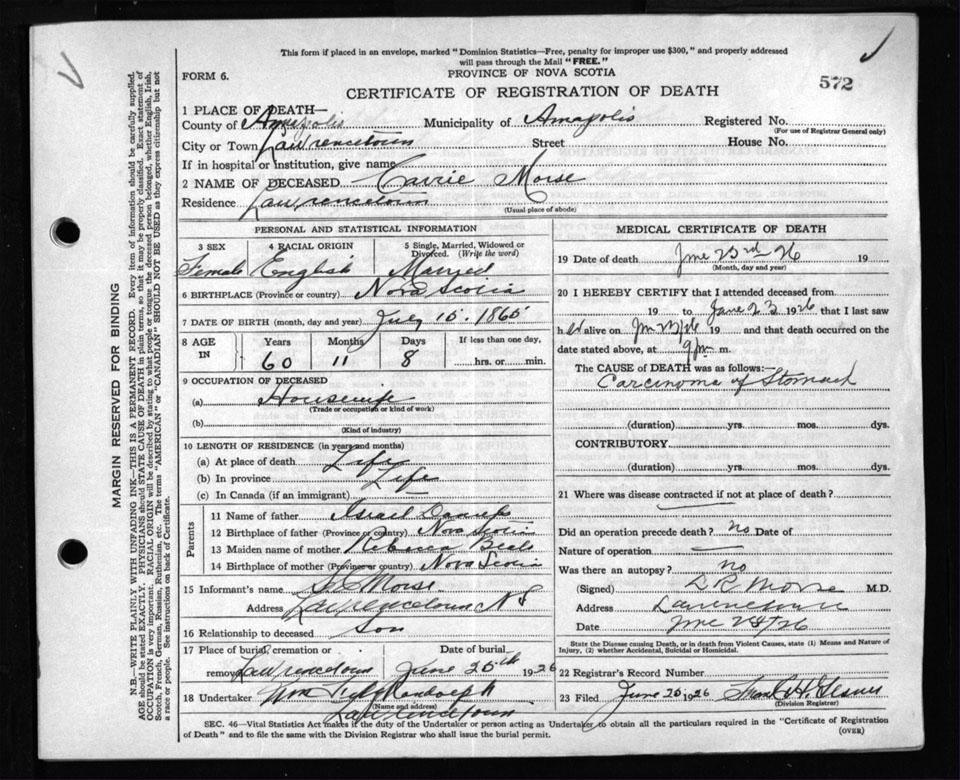 This form if placed in an envelope, marked "Dominion Statistics—Free, penalty for improper use $300," and properly addressed
will pass through the Mail "FREE."
FORM 6.
PROVINCE OF NOVA SCOTIA
572
CERTIFICATE OF REGISTRATION OF DEATH
1 PLACE OF DEATH—
County of Annapolis Municipality of Annapolis Registered No.
(For use of Registrar General only)
City or Town Lawrencetown Street House No.
If in hospital or institution, give name
2 NAME OF DECEASED Carrie Morse
Residence Lawrencetown
(Usual place of abode)
PERSONAL AND STATISTICAL INFORMATION
3 SEX 4 RACIAL ORIGIN 5 Single, Married, Widowed or Divorced. (Write the word)
Female English Married
6 BIRTHPLACE (Province or country) Nova Scotia
7 DATE OF BIRTH (month, day and year) July 15. 1865
8 AGE IN Years Months Days If less than one day,
60 11 8 hrs. or min.
9 OCCUPATION OF DECEASED
(a) Housewife
(Trade or occupation or kind of work)
(b)
(Kind of industry)
10 LENGTH OF RESIDENCE (in years and months)
(a) At place of death Life
(b) In province Life
(c) In Canada (if an immigrant)
Parents
11 Name of father Israel
12 Birthplace of father (Province or country) Nova Scotia
13 Maiden name of mother Rebecca Beals
14 Birthplace of mother (Province or country) Nova Scotia
15 Informant's name Morse
Address Lawrencetown N S
16 Relationship to deceased Son
17 Place of burial, cremation or Date of burial
removal Lawrencetown June 25th 1926
18 Undertaker Wm Randolph
(Name and address)
Lawrencetown
MEDICAL CERTIFICATE OF DEATH
19 Date of death June 23rd 26 19
(Month, day and year)
20 I HEREBY CERTIFY that I attended deceased from
19 to June 23 1926 that I last saw
her alive on June 23/26 19 and that death occurred on
date stated above, at 9 pm m.
The CAUSE of DEATH was as follows:—
Carcinoma of Stomach
(duration) yrs. mos. dys.
CONTRIBUTORY
(duration) yrs. mos. dys.
21 Where was disease contracted if not at place of death?
Did an operation precede death? no Date of
Nature of operation
Was there an autopsy? no
(Signed) L R Morse M.D.
Address Lawrencetown
Date June 24/26
State the Disease causing Death, or in death from Violent Causes, state (1) Means and Nature of
Injury, (2) whether Accidental, Suicidal or Homicidal.
22 Registrar's Record Number
23 Filed June 25 1926 Frank H.
(Division Registrar)
SEC. 46—Vital Statistics Act makes it the duty of the Undertaker or person acting as Undertaker to obtain all the particulars required in the "Certificate of Registration
of Death" and to file the same with the Division Registrar who shall issue the burial permit.
(OVER)
MARGIN RESERVED FOR BINDING
N.B.—WRITE PLAINLY WITH UNFADING INK—THIS IS A PERMANENT RECORD. Every item of information should be carefully supplied.
AGE should be stated EXACTLY. PHYSICIANS should STATE CAUSE OF DEATH in plain terms, so that it may be properly classified. Exact statement of
OCCUPATION is very important. RACIAL ORIGIN will be described by stating to what people or tongue the deceased person belonged, whether English, Irish,
Scotch, French, German, Russian, Ruthenian, etc. The terms "AMERICAN" or "CANADIAN" SHOULD NOT BE USED as they express citizenship but not
a race or people. See instructions on back of Certificate.